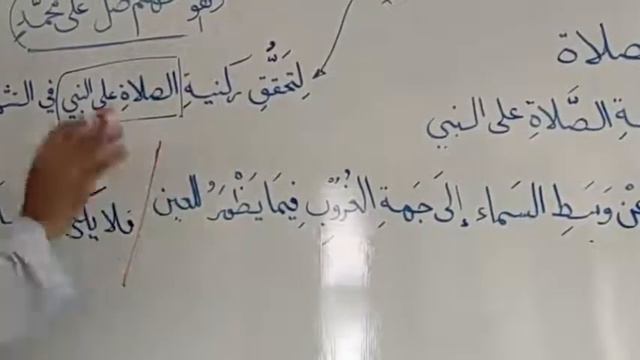 وهو صل على محمد
صلاة
لِتَحَقُّقِ ركنيةِ الصلاةِ على النبي في
الصَّلاةِ على النبي
عَنْ وَسَطِ السَماء إلَى جَهةِ الغُرُوبِ فِيمَا يَظْهَرُ للعين / فلا